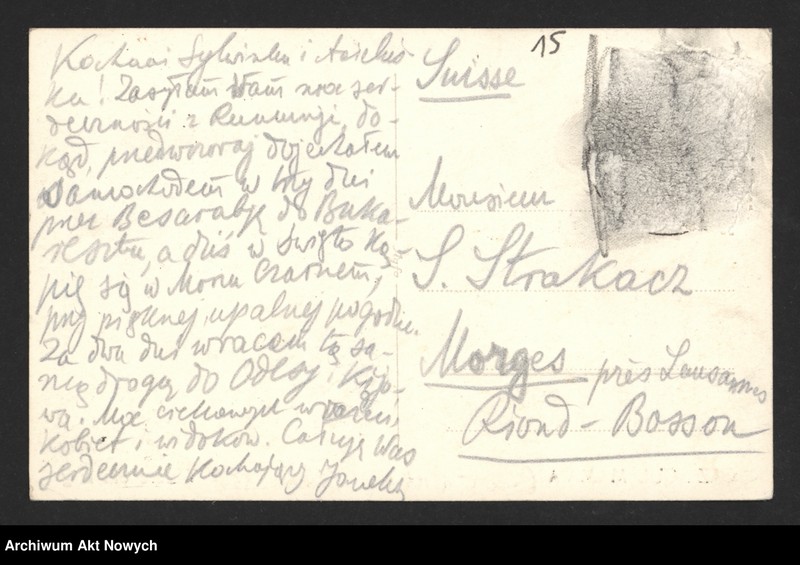 Kochani Sylwinku i Anielciu
ku! Zasyłam Wam moc ser-
deczności z Rumunji, do-
kąd, przedwczoraj dojechałem
samochodem w trzy dni
przez Besarabję do Buka-
resztu, a dziś w święto ką-
pię się w Morzu Czarnem,
przy pięknej, upalnej pogodzie.
Za dwa dni wracam tą sa-
mą drogą do Odesy i Kijo-
wa. Moc ciekawych wrażeń,
kobiet i widoków. Całuję Was
serdecznie Kochający Janek
15
Suisse
Monsieur
S. Strakacz
Morges près Lausanne
Riond-Bosson
Archiwum Akt Nowych